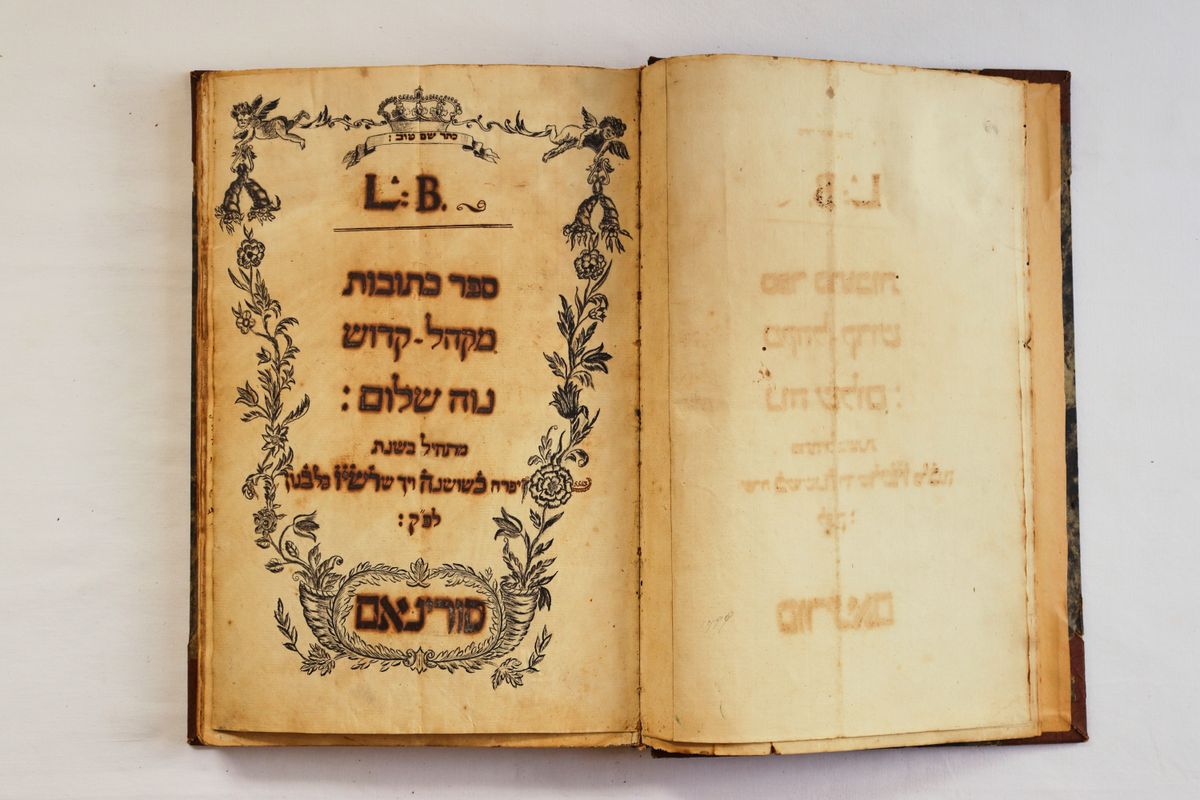 כתר שם טוב :
L:B.
ספר כתובות
מקהל-קדוש
נוה שלום :
מתחיל בשנת
יפרח כשושנה ויך שרשיו כלבנון
לפ״ק :
סורינאם